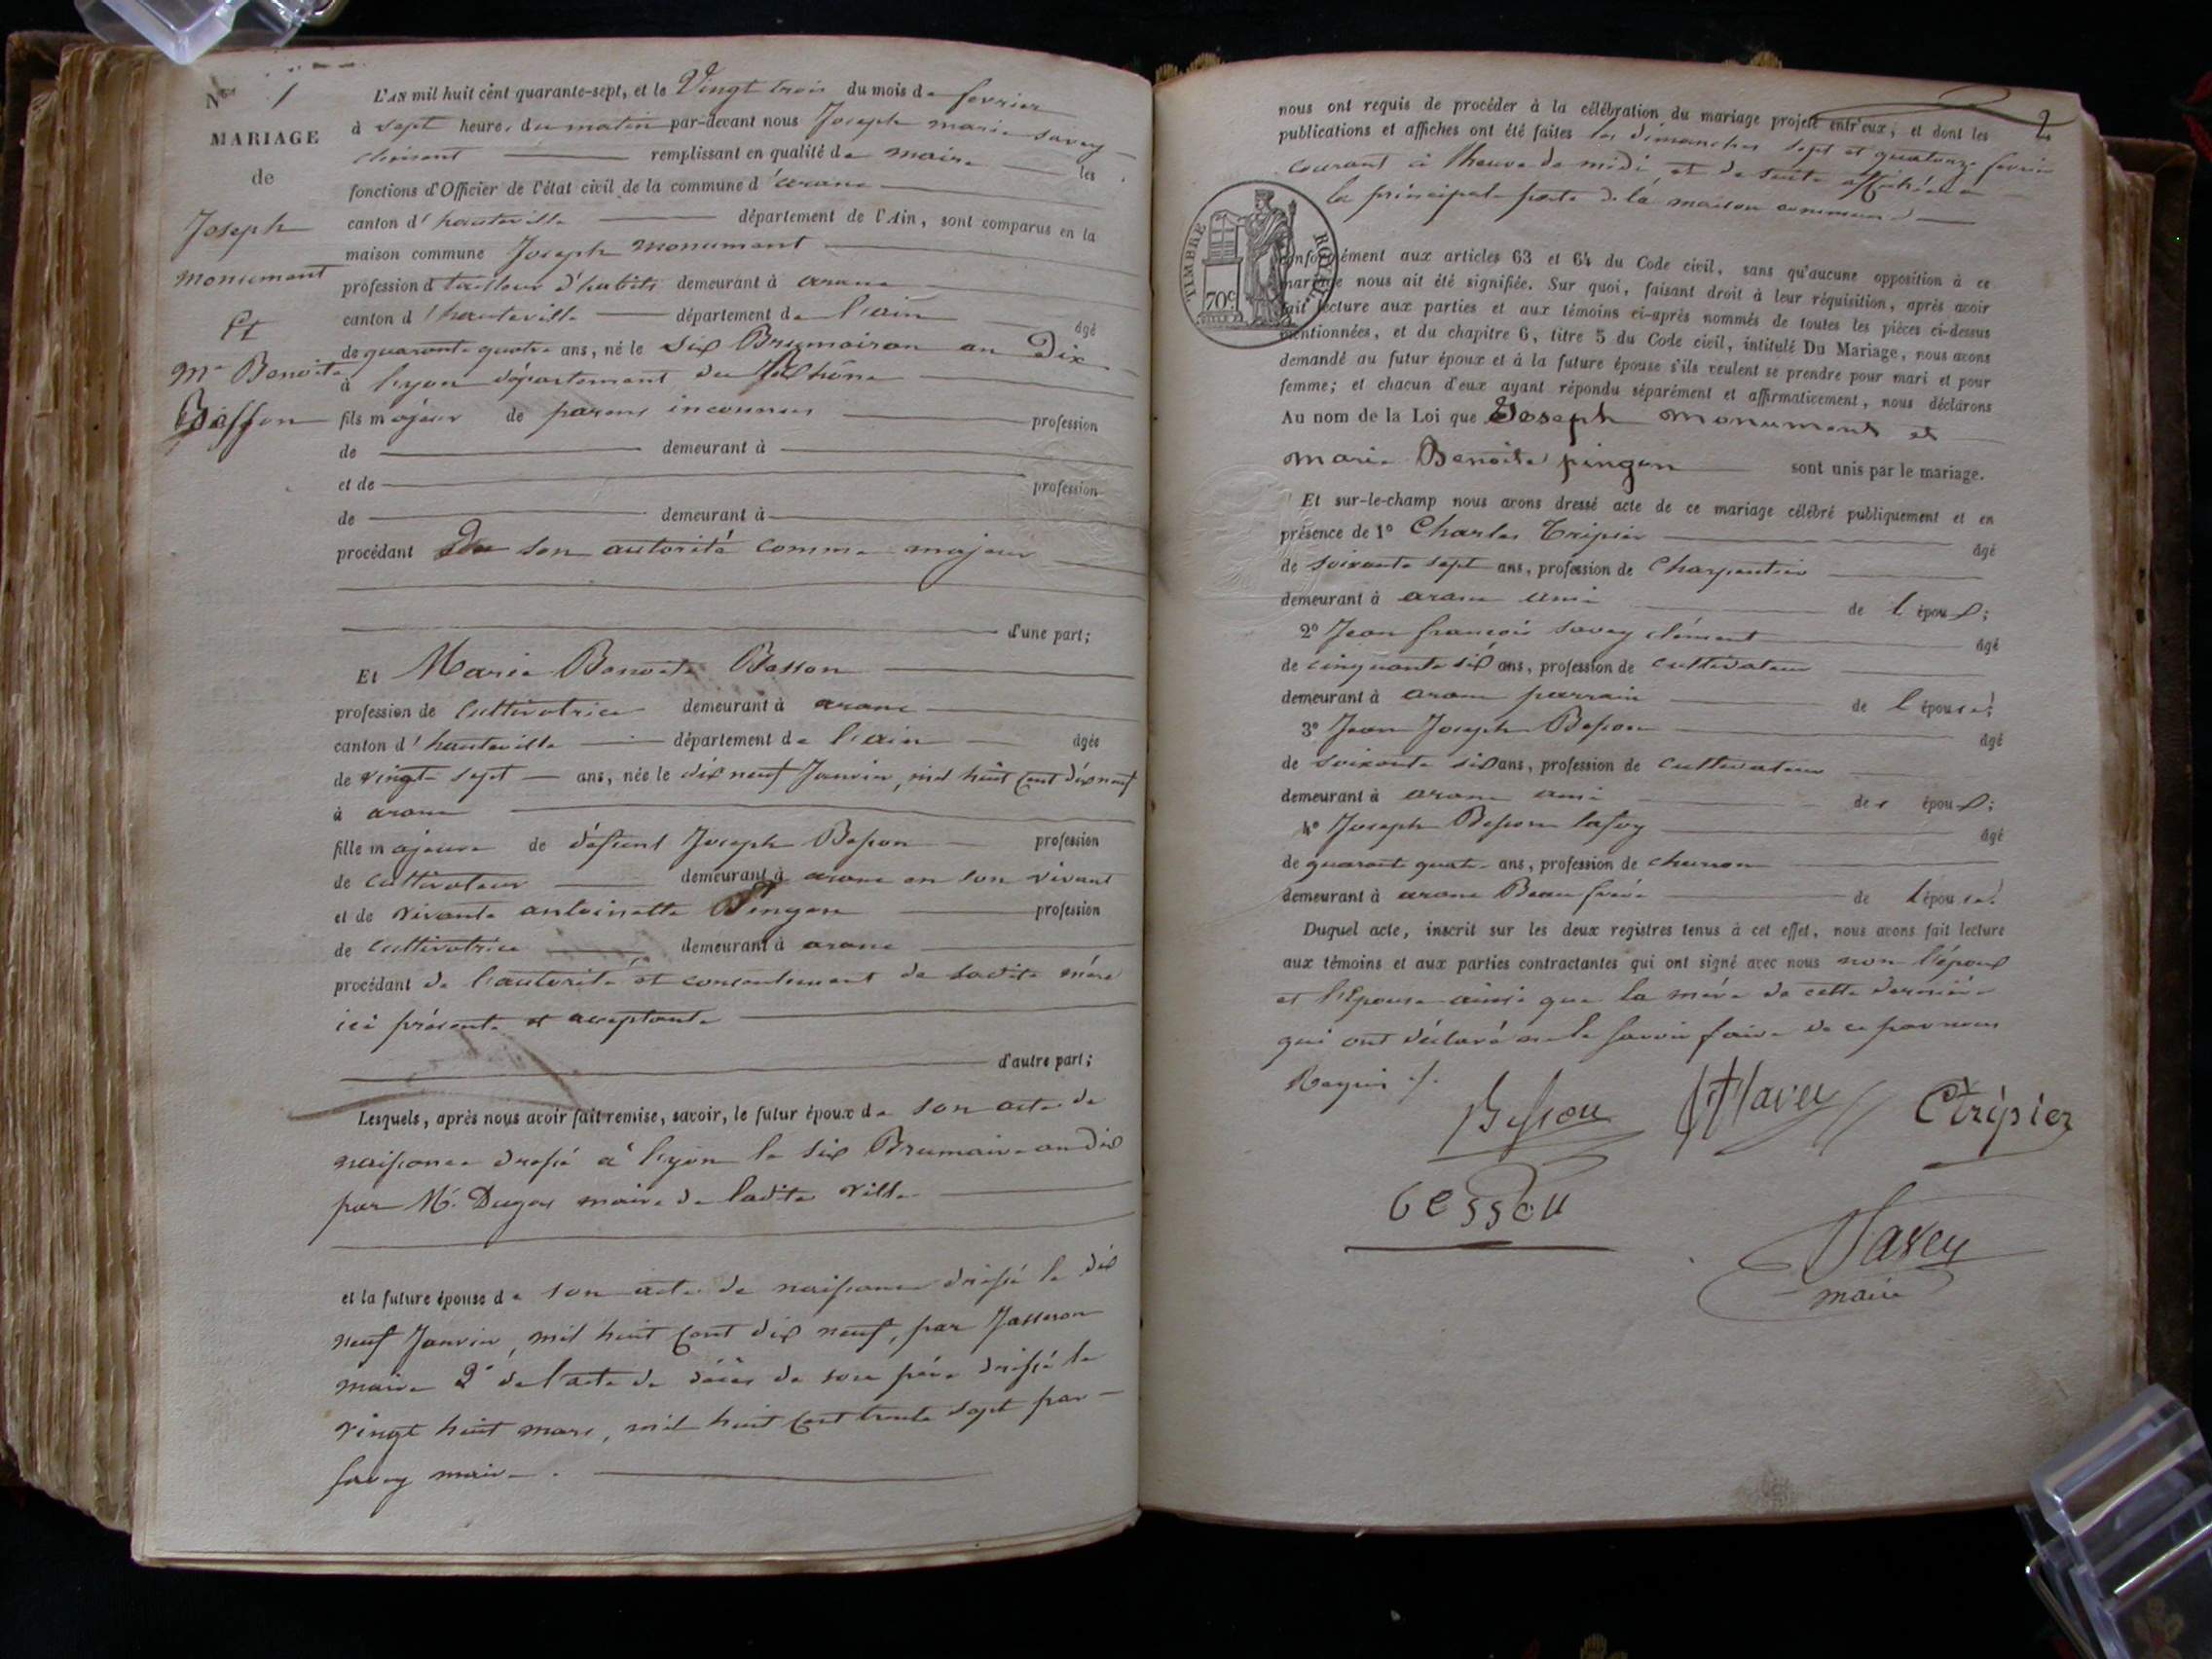 N° 1
MARIAGE
de
Joseph
Monument
Et
Me Benoite
Besson
L'AN mil huit cent quarante-sept, et le Vingt trois du mois de fevrier
à sept heures du matin par-devant nous Joseph marie savey
clément remplissant en qualité de maire les
fonctions d'Officier de l'état civil de la commune d'arane
canton d'hauteville département de l'Ain, sont comparus en la
maison commune Joseph Monument
profession d tailleur d'habits demeurant à arane
canton d'hauteville département de l'ain âgé
de quarante quatre ans, né le six Brumairon an Dix
à lyon département du Rhône
fils majeur de parens inconnus profession
de demeurant à
et de profession
de demeurant à
procédant De son autorité comme majeur
d'une part;
Et Marie Benoite Besson
profession de Cultivatrice demeurant à arane
canton d'hauteville département de l'ain âgée
de vingt sept ans, née le dix neuf Janvier, mil huit cent dix neuf
à arane
fille majeure de défunt Joseph Besson profession
de cultivateur demeurant à arane en son vivant
et de vivante antoinette Pingon profession
de Cultivatrice demeurant à arane
procédant de l'autorité et consentement de sadite mère
ici présente et acceptante
d'autre part;
Lesquels, après nous avoir fait remise, savoir, le futur époux de son acte de
naissance dressé à lyon le six Brumaire an dix
par Mr. Dugas maire de ladite ville
et la future épouse de son acte de naissance dressé le dix
neuf Janvier, mil huit cent dix neuf, par Jasseron
maire 2° de l'acte de décès de son père dressé le
vingt huit mars, mil huit cent trente sept par
savey maire.
2
nous ont requis de procéder à la célébration du mariage projeté entr'eux; et dont les
publications et affiches ont été faites les dimanches sept et quatorze fevrier
courant à l'heure de midi, et de suite affichées à
la principale porte de la maison commune
TIMBRE ROYAL
70c
conformément aux articles 63 et 64 du Code civil, sans qu'aucune opposition à ce
mariage nous ait été signifiée. Sur quoi, faisant droit à leur réquisition, après avoir
fait lecture aux parties et aux témoins ci-après nommés de toutes les pièces ci-dessus
mentionnées, et du chapitre 6, titre 5 du Code civil, intitulé Du Mariage, nous avons
demandé au futur époux et à la future épouse s'ils veulent se prendre pour mari et pour
femme; et chacun d'eux ayant répondu séparément et affirmativement, nous déclarons
Au nom de la Loi que Joseph Monument et
Marie Benoite pingon sont unis par le mariage.
Et sur-le-champ nous avons dressé acte de ce mariage célébré publiquement et en
présence de 1° Charles Tripier âgé
de soixante sept ans, profession de Charpentier
demeurant à arane ami de l époux;
2° Jean françois savey clément âgé
de cinquante six ans, profession de cultivateur
demeurant à arane parrain de l épouse;
3° Jean Joseph Besson âgé
de soixante six ans, profession de cultivateur
demeurant à arane ami de l époux;
4° Joseph Besson lafoy âgé
de quarante quatre ans, profession de charron
demeurant à arane Beau frère de l épouse.
Duquel acte, inscrit sur les deux registres tenus à cet effet, nous avons fait lecture
aux témoins et aux parties contractantes qui ont signé avec nous non l'époux
et l'épouse ainsi que la mère de cette dernière
qui ont déclaré ne le savoir faire de ce par nous
Requis ./.
Besson Savey Ctripier
besson
Savey
maire